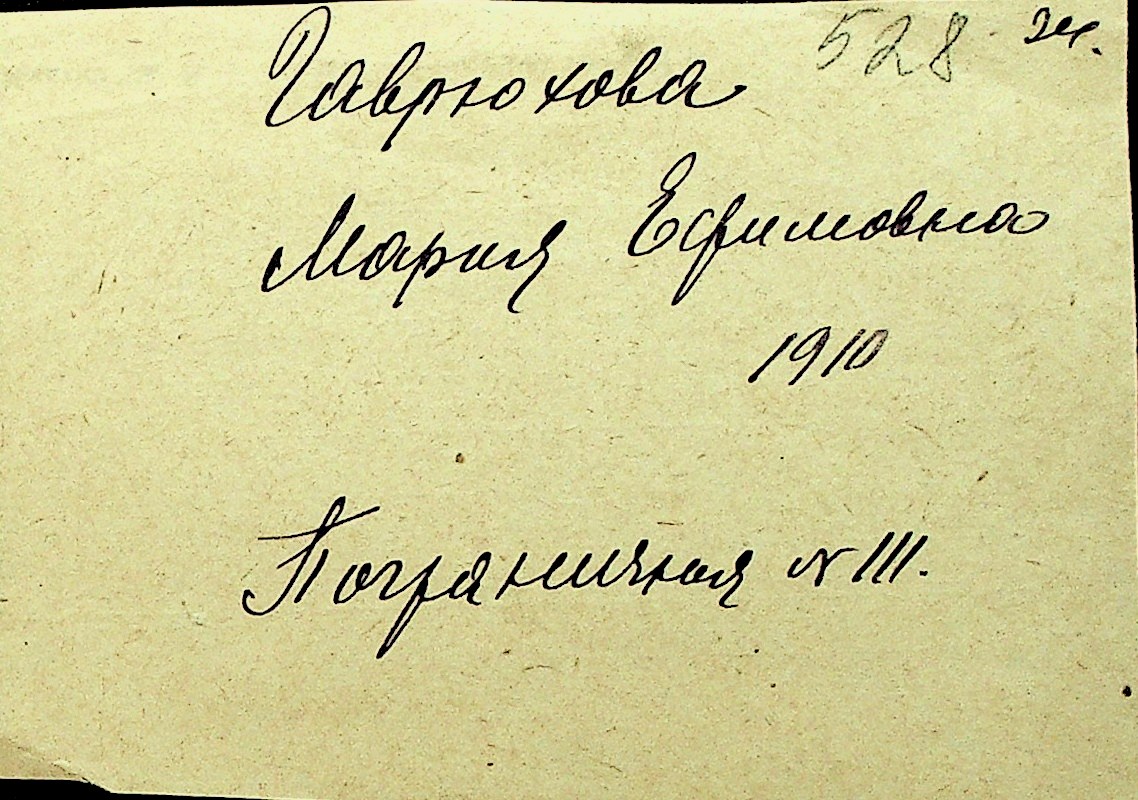 528 Эч.
Гаврюхова
Мария Ефимовна
1910
Пограничная № 111.